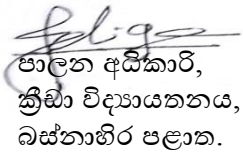 පාලන අධිකාරි,
ක්‍රීඩා විද්‍යායතනය,
බස්නාහිර පළාත.